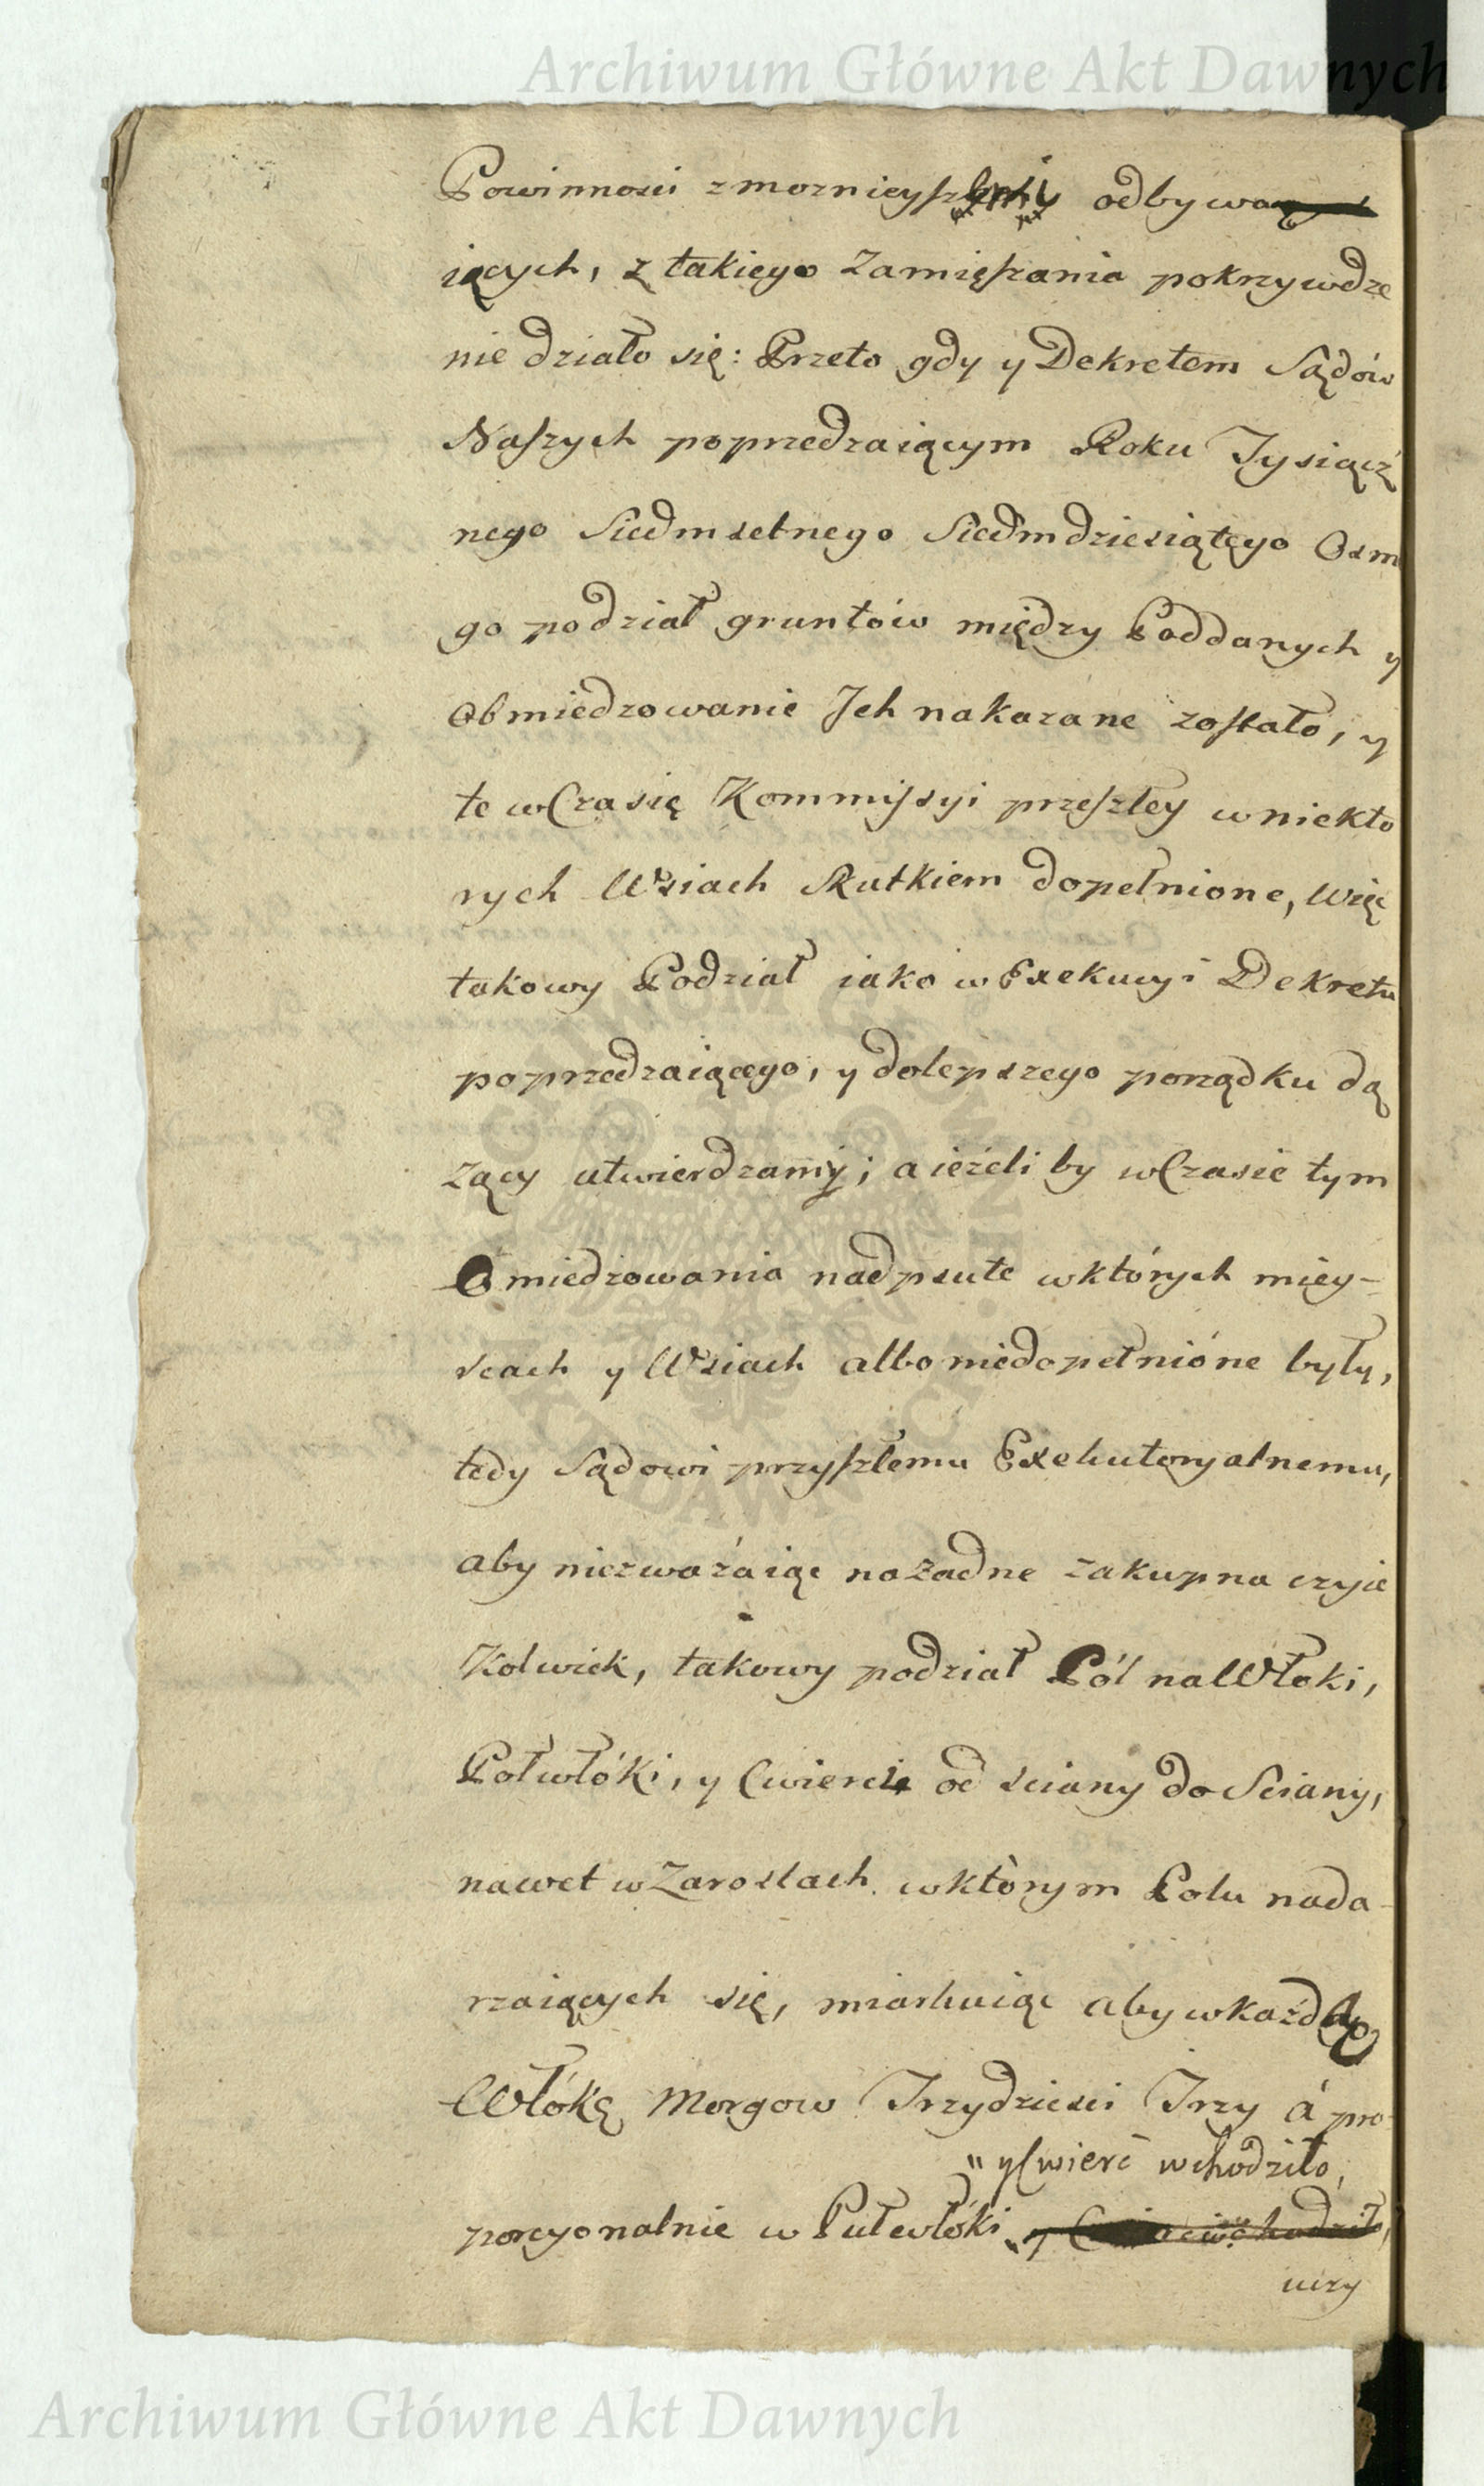 Archiwum Główne Akt Dawnych
Powinnosci zmornieyszemi odbywa
iących, z takiego Zamięszania pokrzywdze
nie działo się: Przeto gdy y Dekretem Sądów
Naszych poprzedzaiącym Roku Tysiącz
nego Siedmsetnego Siedmdziesiątego Osm
go podział gruntów między Poddanych y
Obmiedzowanie Jch nakazane zostało, y
te wCzasię Kommissyi przeszłey w niekto
rych Wsiach Skutkiem dopełnione, Więc
takowy Podział iako w Exekucyi Dekretu
poprzedzaiącego, y dolepszego porządku dą
Zący utwierdzamy; a ieźeli by wCzasie tym
Omiedzowania nadpsute w których miey-
scach y Wsiach albo niedopełnióne były,
tedy Sądowi przyszłemu Exekutoryalnemu,
aby niezwaźaiąc nażadne zakupna czyie
Kolwiek, takowy podział Pól na Włoki,
Połwłóki, y Cwierci od sciany do Sciany,
nawet w Zaroslach w którym Polu nada-
rzaiących się, miarkuiąc aby wkażdą
Włókę Morgow Trzydziesci Trzy á pro
" y Cwierć wchodziło,
porcyonalnie w Pułwłóki
uczy
Archiwum Główne Akt Dawnych